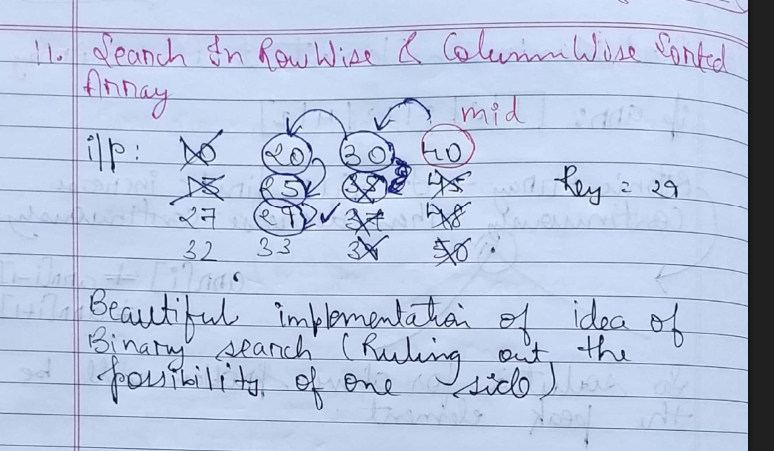 11. Search In RowWise & ColumnWise Sorted
Array
mid
i/p: 10 20 30 40
15 25 35 45 Key = 29
27 29 37 48
32 33 50
Beautiful implementation of idea of
Binary search (Ruling out the
possibility of one side)